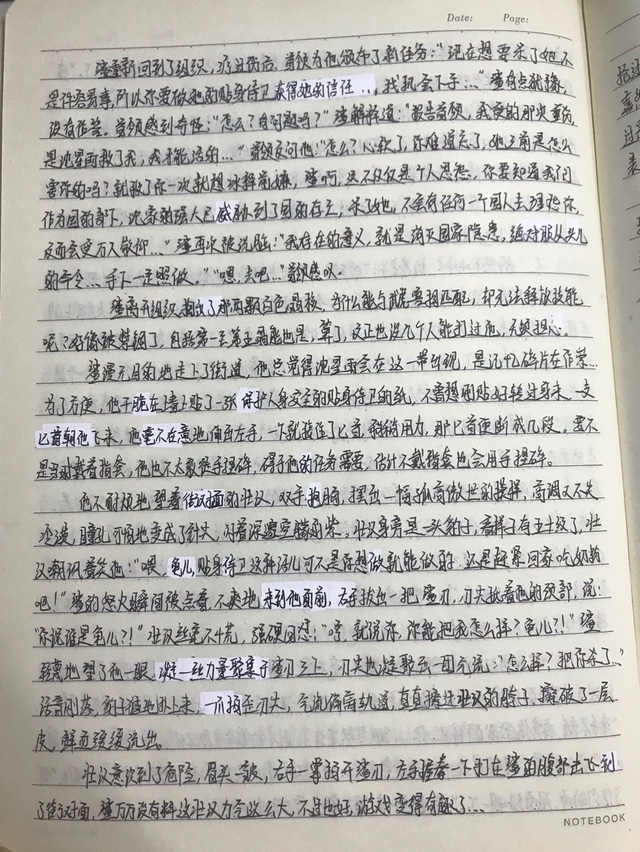 Date: Page:
渣重新回到了组织，疗且伤治，首领为他颁布了新任务：“现在想要杀了她不
是件容易事，所以你要做她的贴身侍卫获得她的信任...，找机会下手...”渣有点犹豫，
没有作答。首领感到奇怪：“怎么？有问题吗？”渣解释道：“报告首领，我受的那次重伤，
是沈星雨救了我，我才能活的...”首领反问他：“怎么？心软了，你难道忘了，她之前是怎么
害你的吗？就救了你一次就想冰释前嫌，渣啊，这不仅仅是个人恩怨，你要知道我们
作为国的部下，沈家的强人已威胁到了国的存亡，杀了她，不会有任何一个国人去
反而会受万人敬仰...”渣再次被说服：“我存在的意义，就是消灭国家隐患，绝对服从
的命令...手下一定照做。”“嗯，去吧...”首领感叹。
渣离开组织掏出了那两颗白色晶核，为什么能与武器要相匹配，却无法释放技能
呢？好像被禁锢了，自己第一至第五晶能也是，算了，反正也没几个人能打过他，不须担心。
渣漫无目的地走下了街道，他总觉得沈星雨会在这一带出现，是记忆碎片在作祟...
为了方便，他干脆在墙上贴了一张保护人身安全的贴身侍卫的纸，不曾想刚贴好转过身来，一支
匕首朝他飞来，他毫不在意地伸出左手，一下就接住了匕首，稍稍用力，那匕首便断成几段。要不
是当时戴着指套，他也不太敢徒手捏碎，碍于他的任务需要，估计不戴指套也会用手捏碎。
他不耐烦地望着街对面的壮汉，双手抱胸，摆出一幅孤高傲世的模样，高调又不失
冷淡，瞳孔不悄地变成了针尖，对着深邃空瞳的柴，壮汉身旁是一头豹子，看样子有五十级了，壮
汉嘲讽着笑他：“喂，龟儿，贴身侍卫这种活儿可不是你想做就能做的，还是赶紧回家吃奶粉
吧！”渣的怒火瞬间被点着，不爽地来到他面前，右手拔出一把渣刃，刀尖抵着他的颈部，说：
“你说谁是龟儿？！”壮汉丝毫不慌，强硬回怼：“哼，就说你，你能把我怎么样？龟儿？！”渣
轻蔑地望了他一眼，凝一丝力量聚集于渣刃之上，刃尖也凝聚出一团气流：“怎么样？把你杀了...”
话音刚落，豹子猛地扑上来，一爪拍歪刃尖，气流偏离轨道，直直擦过壮汉的脖子，擦破了一层
皮，鲜血缓缓流出。
壮汉意识到了危险，眉头一皱，右手一掌拍开渣刃，左手接着一下打在渣的腹部击飞到
了街对面，渣万万没有料这壮汉力气这么大，不过也好，游戏变得有趣了...
NOTEBOOK